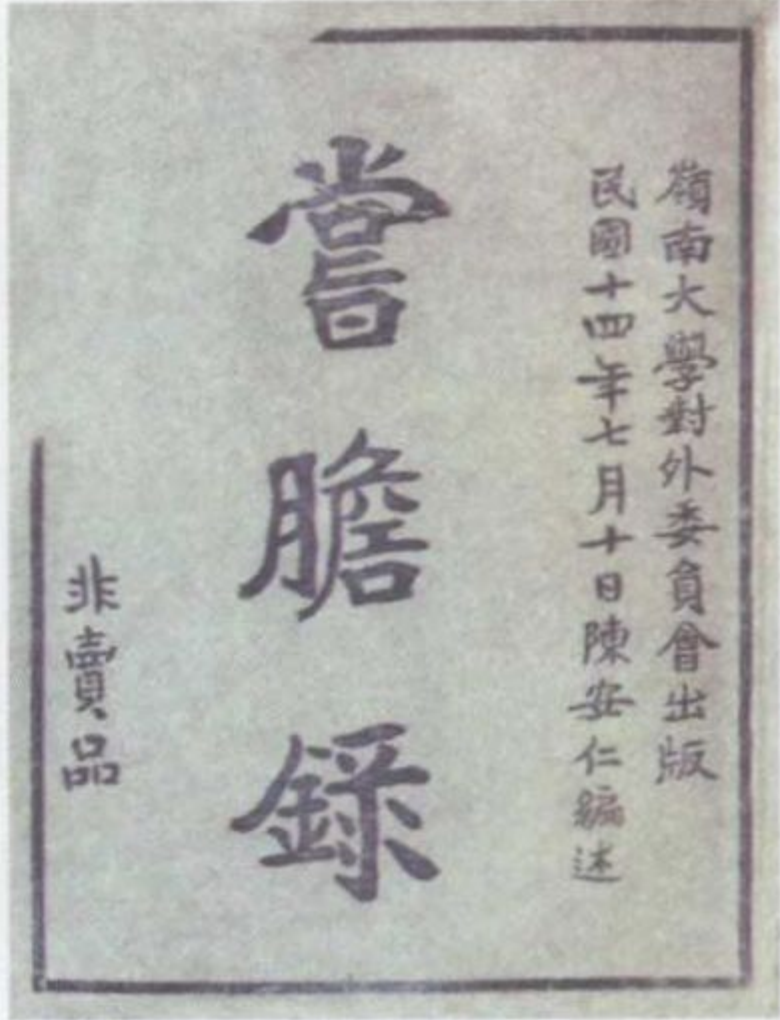 嶺南大學對外委員會出版
民國十四年七月十日陳安仁編述
嘗膽錄
非賣品